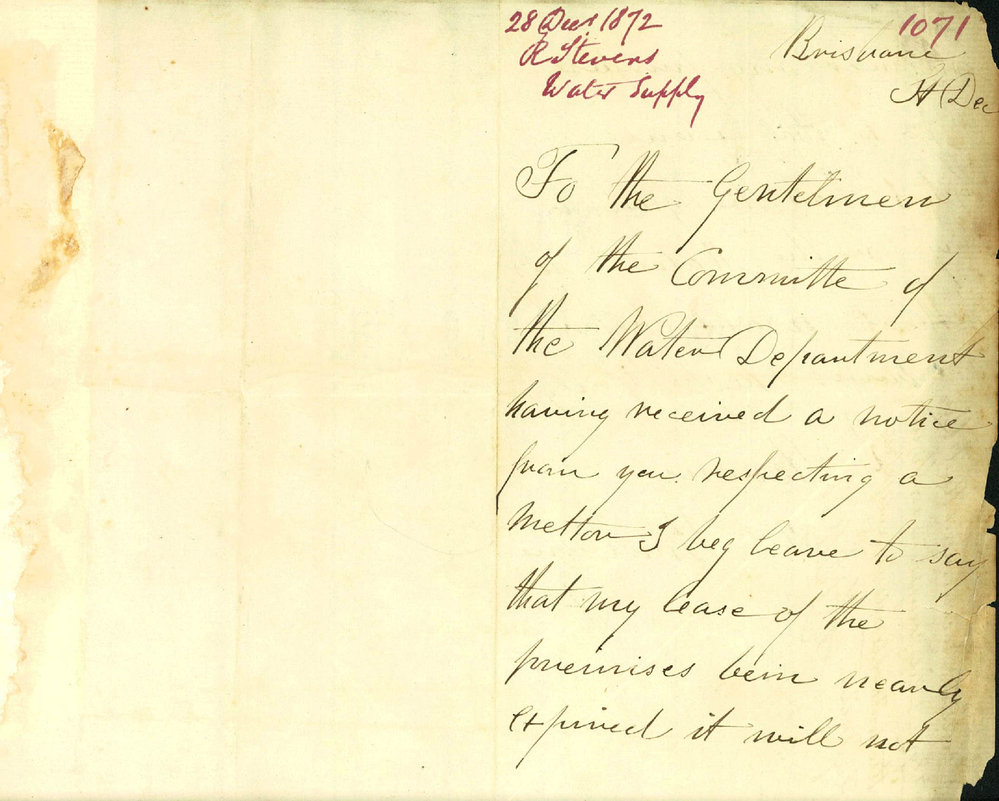 28 Decr 1872
R Stevens
Water Supply
1071
Brisbane
Dec
To the Gentelmen
of the Committe of
the Water Department
having received a notice
from you respecting a
mettor I beg leave to say
that my lease of the
premises bein nearly
expired it will not